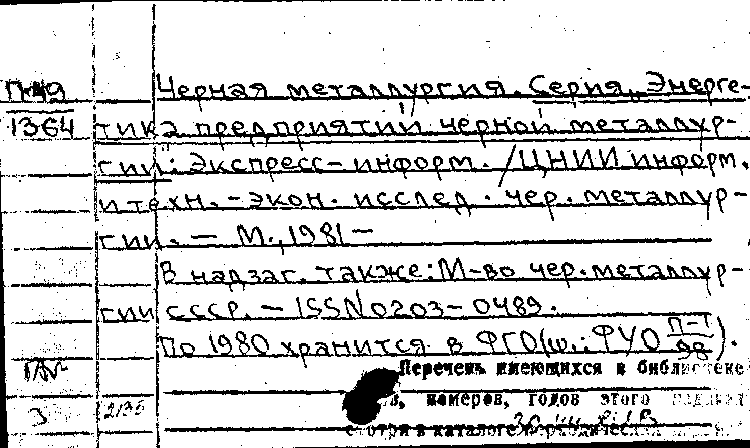 П-49
1364
Черная металлургия. Серия „Энерге-
тика предприятий черной металлур-
гии: Экспресс-информ. / ЦНИИ информ.
и техн.-экон. исслед. чер. металлур-
гии. — М., 1981 —
В надзаг. также: М-во чер. металлур-
гии СССР. — ISSN 0203-0489.
По 1980 хранится в ФГО (ш.: ФУО П-1/98).
Перечень имеющихся в библиотеке
номеров, годов этого
смотри в каталоге
3 2135